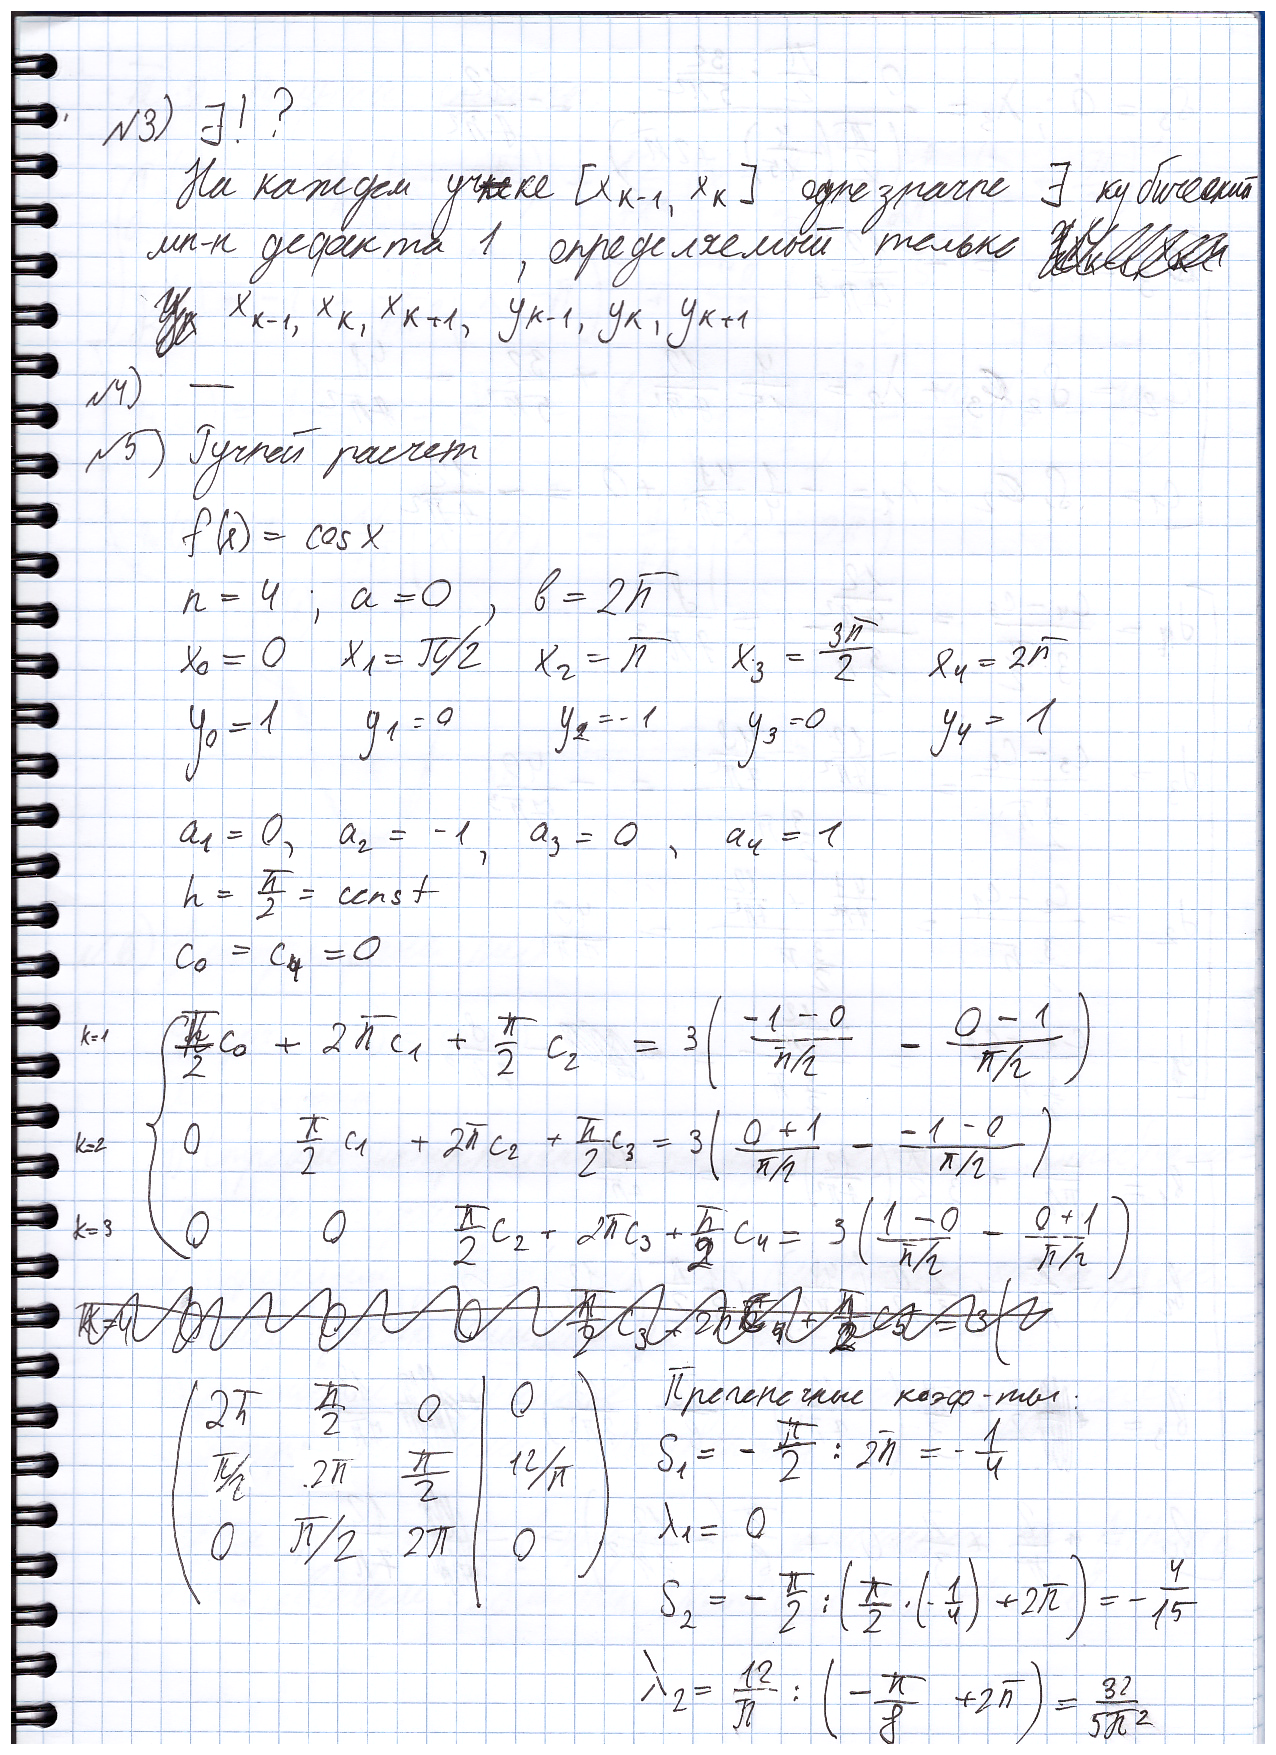 №3) ∃! ?
На каждом уч-ке [x_{k-1}, x_k] однозначно ∃ кубический
мн-н дефекта 1, определяемый только
x_{k-1}, x_k, x_{k+1}, y_{k-1}, y_k, y_{k+1}
№4) —
№5) Ручной расчет
f(x) = cos x
n = 4 ; a = 0 , b = 2π
x_0 = 0 x_1 = π/2 x_2 = π x_3 = 3π/2 x_4 = 2π
y_0 = 1 y_1 = 0 y_2 = -1 y_3 = 0 y_4 = 1
a_1 = 0, a_2 = -1, a_3 = 0, a_4 = 1
h = π/2 = const
c_0 = c_4 = 0
k=1 π/2 c_0 + 2π c_1 + π/2 c_2 = 3( (-1 - 0)/(π/2) - (0 - 1)/(π/2) )
k=2 0 π/2 c_1 + 2π c_2 + π/2 c_3 = 3( (0 + 1)/(π/2) - (-1 - 0)/(π/2) )
k=3 0 0 π/2 c_2 + 2π c_3 + π/2 c_4 = 3( (1 - 0)/(π/2) - (0 + 1)/(π/2) )
( 2π π/2 0 | 0 )
( π/2 2π π/2 | 12/π )
( 0 π/2 2π | 0 )
Прогоночные коэф-ты:
δ_1 = - π/2 : 2π = - 1/4
λ_1 = 0
δ_2 = - π/2 : ( π/2 · (- 1/4) + 2π ) = - 4/15
λ_2 = 12/π : ( - π/8 + 2π ) = 32/5π²